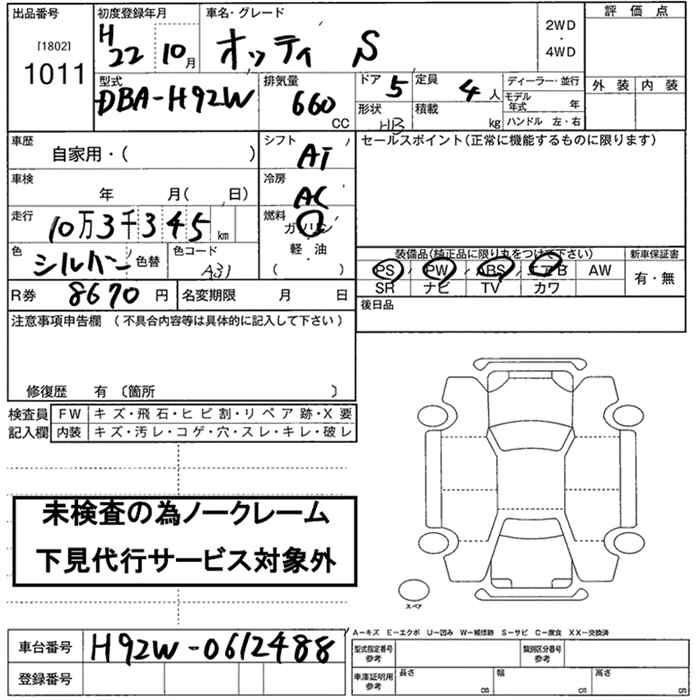 出品番号 初度登録年月 車名・グレード 評価点
[1802] H22 10月 オッティ S 2WD・4WD
1011
型式 排気量 ドア 5 定員 4人 ディーラー・並行 外装 内装
DBA-H92W 660CC 形状 HB 積載 kg モデル年式 年
ハンドル 左・右
車歴 自家用・( ) シフト AT セールスポイント(正常に機能するものに限ります)
車検 年 月( 、日) 冷房 AC
走行 10万3千345km 燃料 ガソリン
軽・油
( )
色 シルバー 色替 色コード A31 装備品(純正品に限り丸をつけて下さい) 新車保証書
PS PW ABS エアB AW 有・無
SR ナビ TV カワ
R券 8670円 名変期限 月 日 後日品
注意事項申告欄 (不具合内容等は具体的に記入して下さい)
修復歴 有 〔箇所 〕
検査員 FW キズ・飛石・ヒビ割・リペア跡・X要
記入欄 内装 キズ・汚レ・コゲ・穴・スレ・キレ・破レ
未検査の為ノークレーム
下見代行サービス対象外
スペア
A－キズ E－エクボ U－凹み W－補修跡 S－サビ C－腐食 XX－交換済
車台番号 H92W-0612488 型式指定番号 参考 類別区分番号 参考
登録番号 車庫証明用 参考 長さ cm 幅 cm 高さ cm